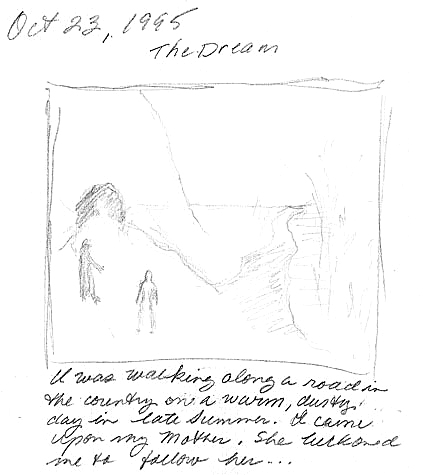 Oct 23, 1995
The Dream
I was walking along a road in
the country on a warm, dusty
day in late Summer. I came
upon my Mother. She beckoned
me to follow her...